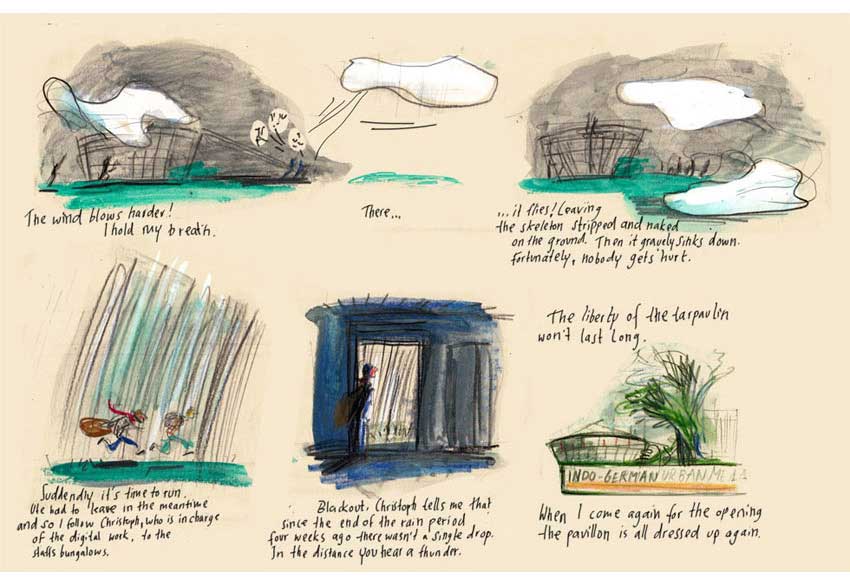 The wind blows harder!
I hold my breath.
There...
...it flies! Leaving
the skeleton stripped and naked
on the ground. Then it gravely sinks down.
Fortunately, nobody gets hurt.
Suddenly it's time to run.
Ule had to leave in the meantime
and so I follow Christoph, who is in charge
of the digital work, to the
staffs bungalows.
Blackout. Christoph tells me that
since the end of the rain period
four weeks ago there wasn't a single drop.
In the distance you hear a thunder.
The liberty of the tarpaulin
won't last long.
INDO-GERMAN URBAN MELA
When I come again for the opening
the pavillon is all dressed up again.